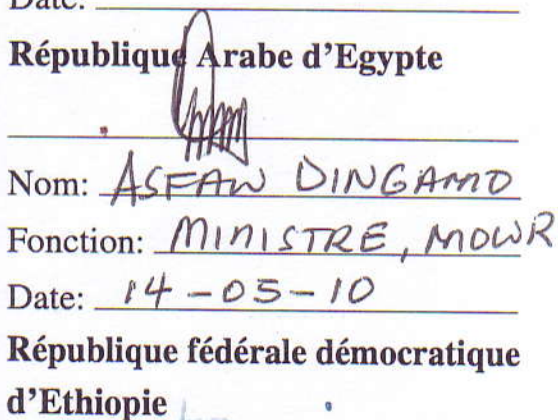 Date:
République Arabe d'Egypte
Nom: ASFAW DINGAMO
Fonction: MINISTRE, MOWR
Date: 14-05-10
République fédérale démocratique
d'Ethiopie